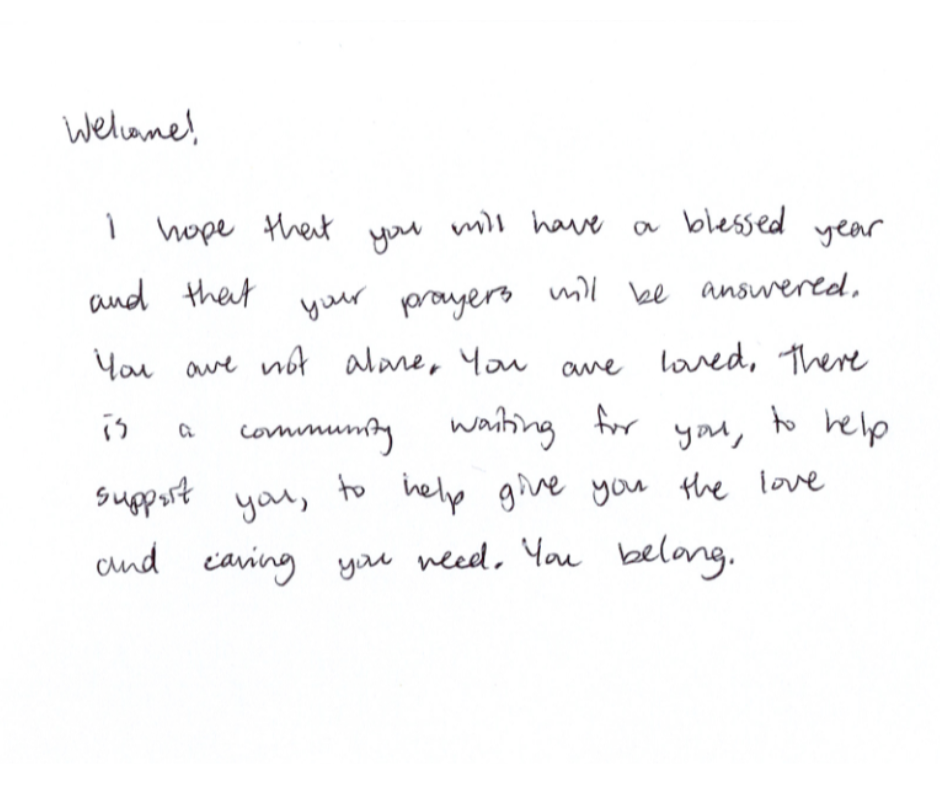 Welcome!
I hope that you will have a blessed year
and that your prayers will be answered.
You are not alone. You are loved. There
is a community waiting for you, to help
support you, to help give you the love
and caring you need. You belong.